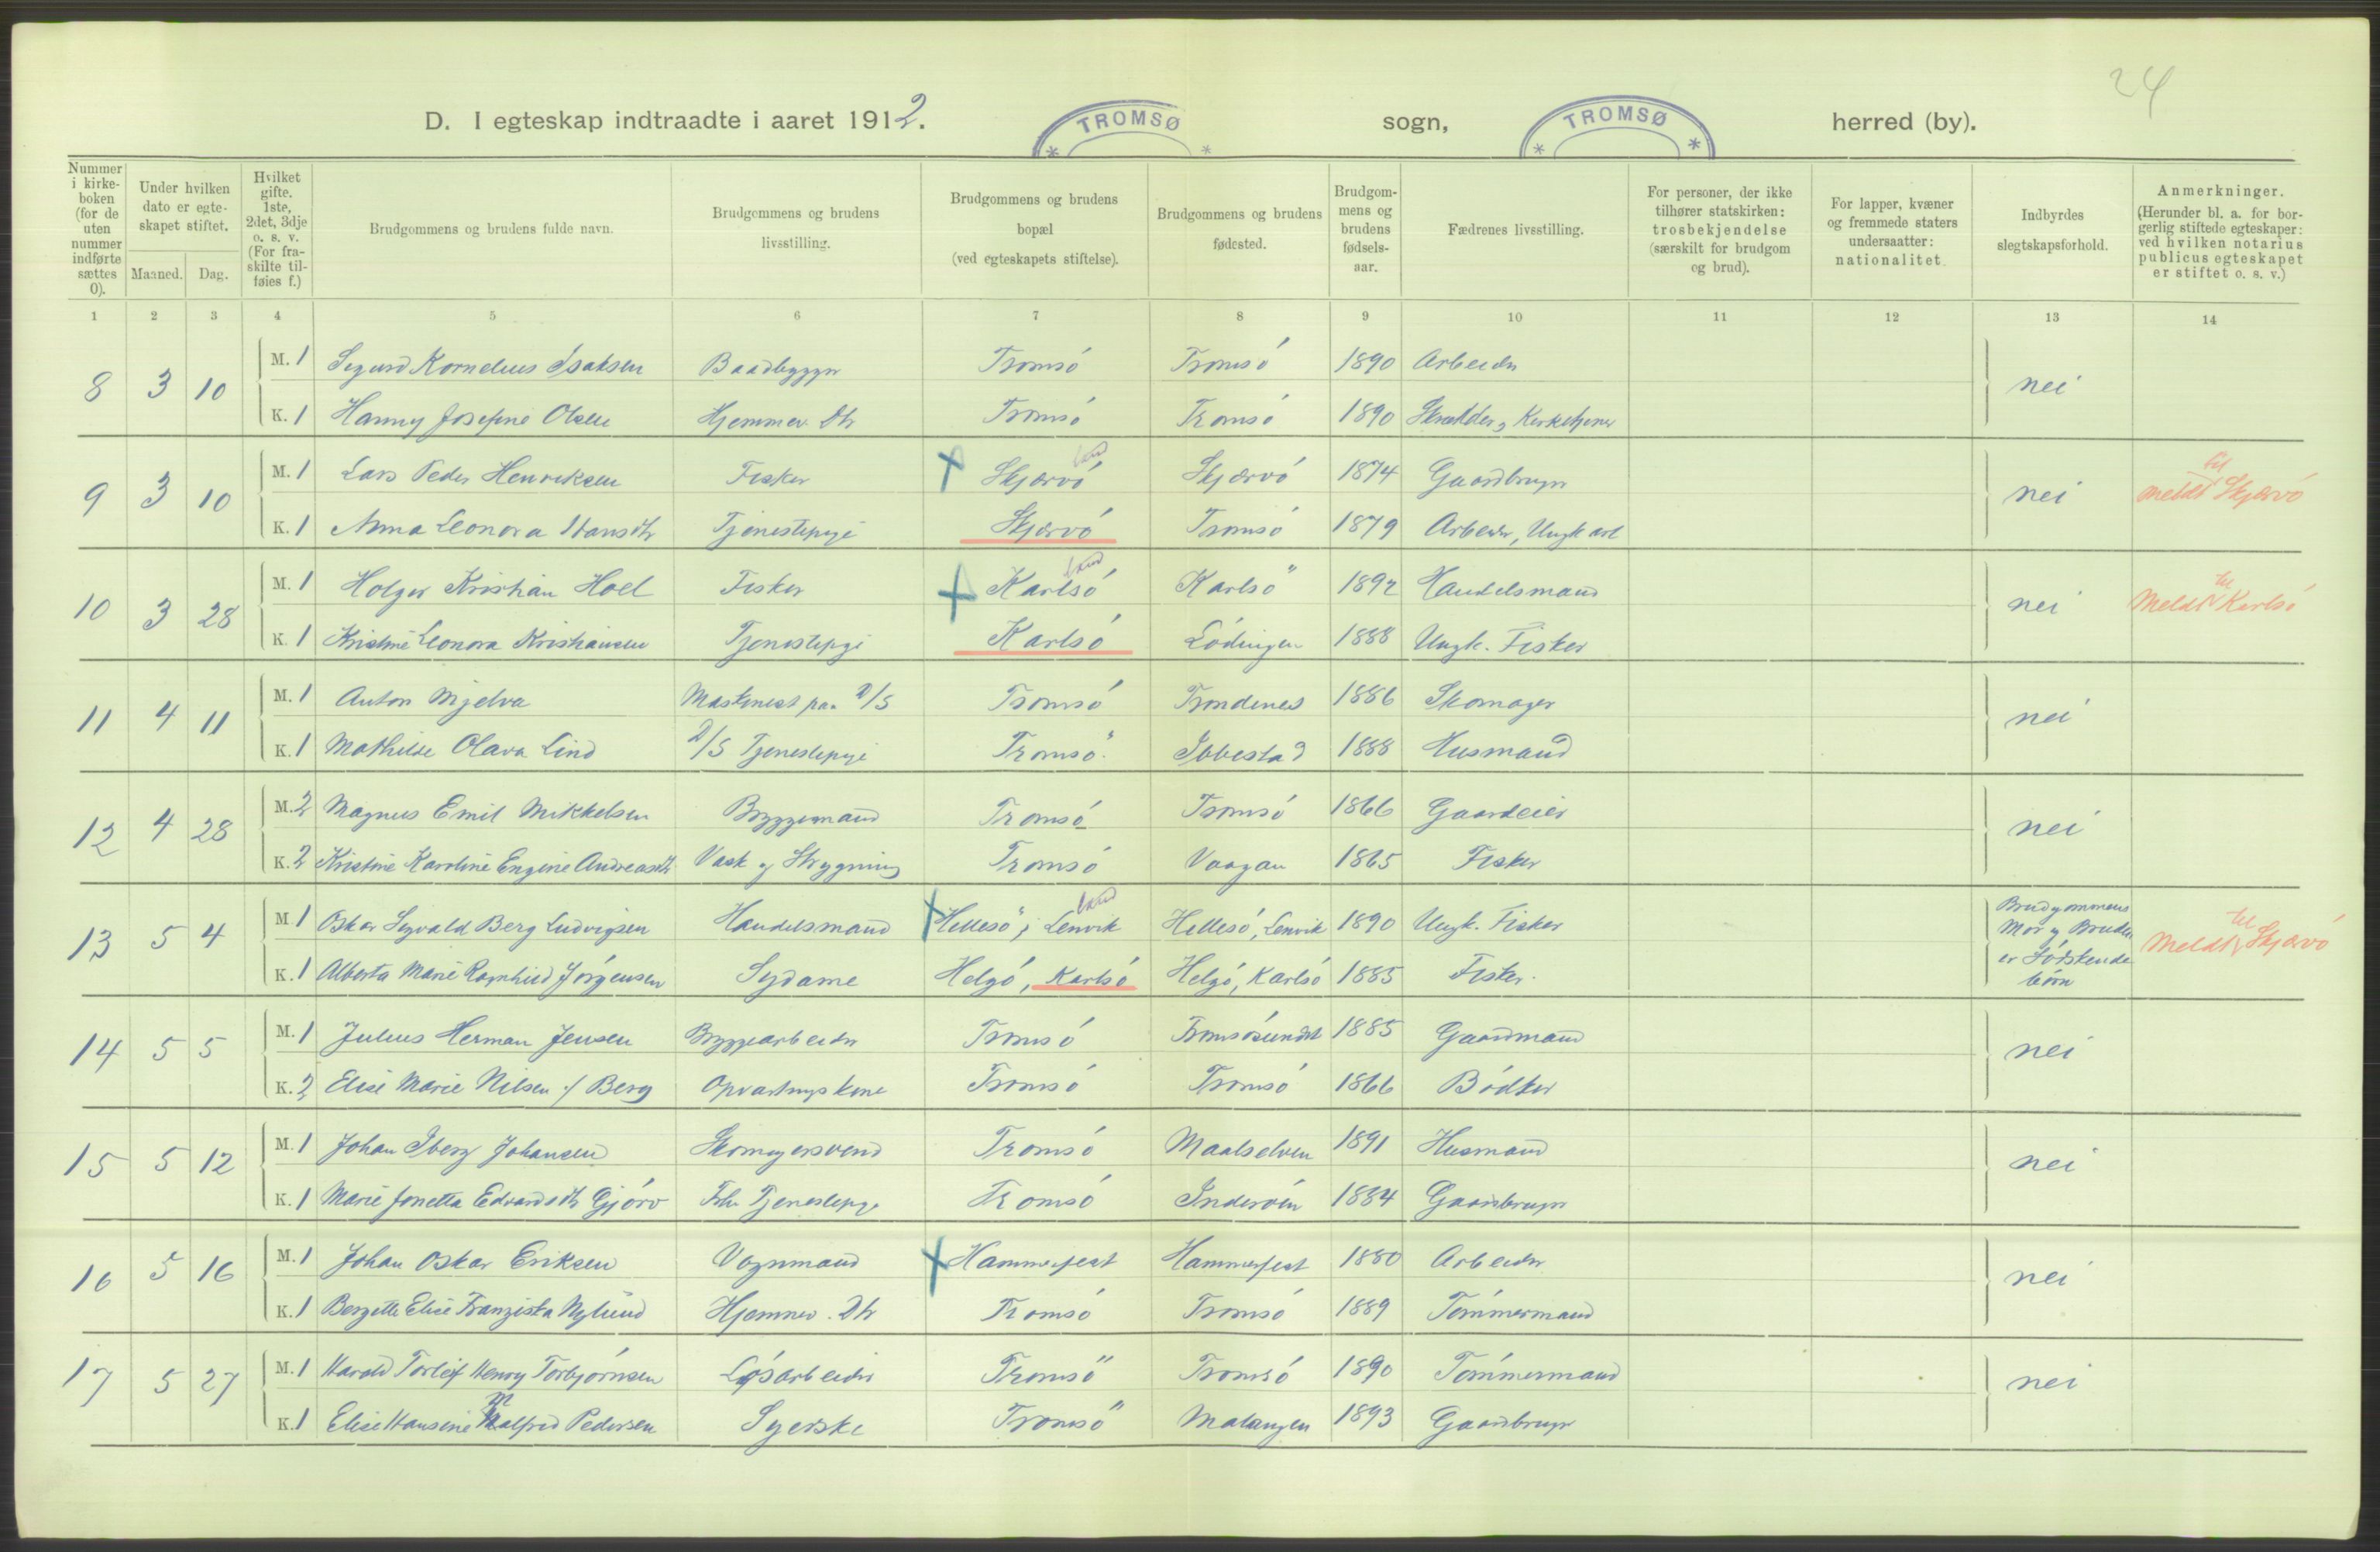 24
D. I egteskap indtraadte i aaret 1912. TROMSØ sogn, TROMSØ herred (by).
Nummer i kirke-boken (for de uten nummer indførte sættes 0).
Under hvilken dato er egte-skapet stiftet.
Maaned. Dag.
Hvilket gifte. 1ste, 2det, 3dje o. s. v. (For fra-skilte til-føies f.)
Brudgommens og brudens fulde navn.
Brudgommens og brudens livsstilling.
Brudgommens og brudens bopæl (ved egteskapets stiftelse).
Brudgommens og brudens fødested.
Brudgom-mens og brudens fødsels-aar.
Fædrenes livsstilling.
For personer, der ikke tilhører statskirken: trosbekjendelse (særskilt for brudgom og brud).
For lapper, kvæner og fremmede staters undersaatter: nationalitet.
Indbyrdes slegtskapsforhold.
Anmerkninger. (Herunder bl. a. for bor-gerlig stiftede egteskaper: ved hvilken notarius publicus egteskapet er stiftet o. s. v.)
1 2 3 4 5 6 7 8 9 10 11 12 13 14
8 3 10 M. 1 Sigurd Kornelius Isaksen Baadbygger Tromsö Tromsö 1890 Arbeider nei
K. 1 Hanny Josefine Olsen Hjemmev. Dtr Tromsö Tromsö 1890 Skrædder, Kirketjener
9 3 10 M. 1 Lars Peder Henriksen Fisker Skjærvö land Skjærvö 1874 Gaardbruger nei meldt til Skjærvö
K. 1 Anna Leonora Hansdtr Tjenestepige Skjærvö Tromsö 1879 Arbeider, Ungkarl
10 3 28 M. 1 Holger Kristian Hoel Fisker Karlsö land Karlsö 1892 Handelsmand nei Meldt til Karlsö
K. 1 Kristine Leonora Kristiansen Tjenestepige Karlsö Lödingen 1888 Ungk. Fisker
11 4 11 M. 1 Anton Mjelva Maskinist paa D/S Tromsö Trondenes 1886 Skomager nei
K. 1 Mathilde Olava Lind D/S Tjenestepige Tromsö Ibbestad 1888 Husmand
12 4 28 M. 2 Magnus Emil Mikkelsen Bryggemand Tromsö Tromsö 1866 Gaardeier nei
K. 2 Kristine Karoline Engine Andreasdtr Vask og Strygning Tromsö Vaagan 1865 Fisker
13 5 4 M. 1 Oskar Sigvald Berg Ludvigsen Handelsmand Hellesö, Lenvik land Hellesö, Lenvik 1890 Ungk. Fisker Brudgommens Mor og Bruden er Södskende börn Meldt til Skjærvö
K. 1 Alberta Marie Ragnhild Jörgensen Sydame Helgö, Karlsö Helgö, Karlsö 1885 Fisker.
14 5 5 M. 1 Julius Herman Jensen Bryggearbeider Tromsö Tromsösundet 1885 Gaardmand nei
K. 2 Elise Marie Nilsen f/ Berg Opvartningskone Tromsö Tromsö 1866 Bödker
15 5 12 M. 1 Johan Iberg Johansen Skomagersvend Tromsö Maalselven 1891 Husmand nei
K. 1 Marie Jonetta Edvardsdtr Gjörv Fhv. Tjenestepige Tromsö Inderöen 1884 Gaardbruger
16 5 16 M. 1 Johan Oskar Eriksen Vognmand Hammerfest Hammerfest 1880 Arbeider nei
K. 1 Bergette Elise Franziska Nylund Hjemmev. Dtr Tromsö Tromsö 1889 Tömmermand
17 5 27 M. 1 Harald Torleif Henry Torbjörnsen Lösarbeider Tromsö Tromsö 1890 Tömmermand nei
K. 1 Elise Hansine Malfrid Pedersen Syerske Tromsö Malangen 1893 Gaardbruger